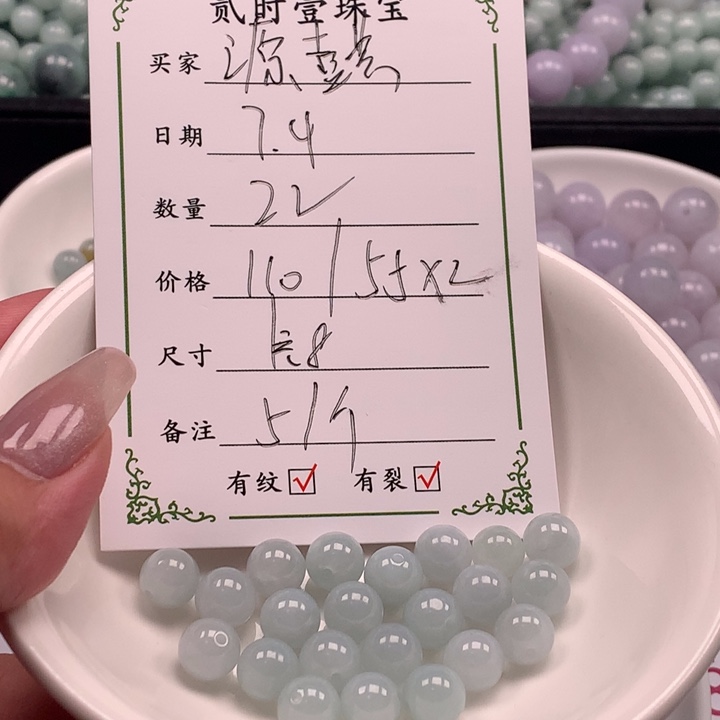 贰时壹珠宝
买家 源
日期 7.4
数量 22
价格 110/55×2
尺寸 8
备注 5/个
有纹 ☑ 有裂 ☑